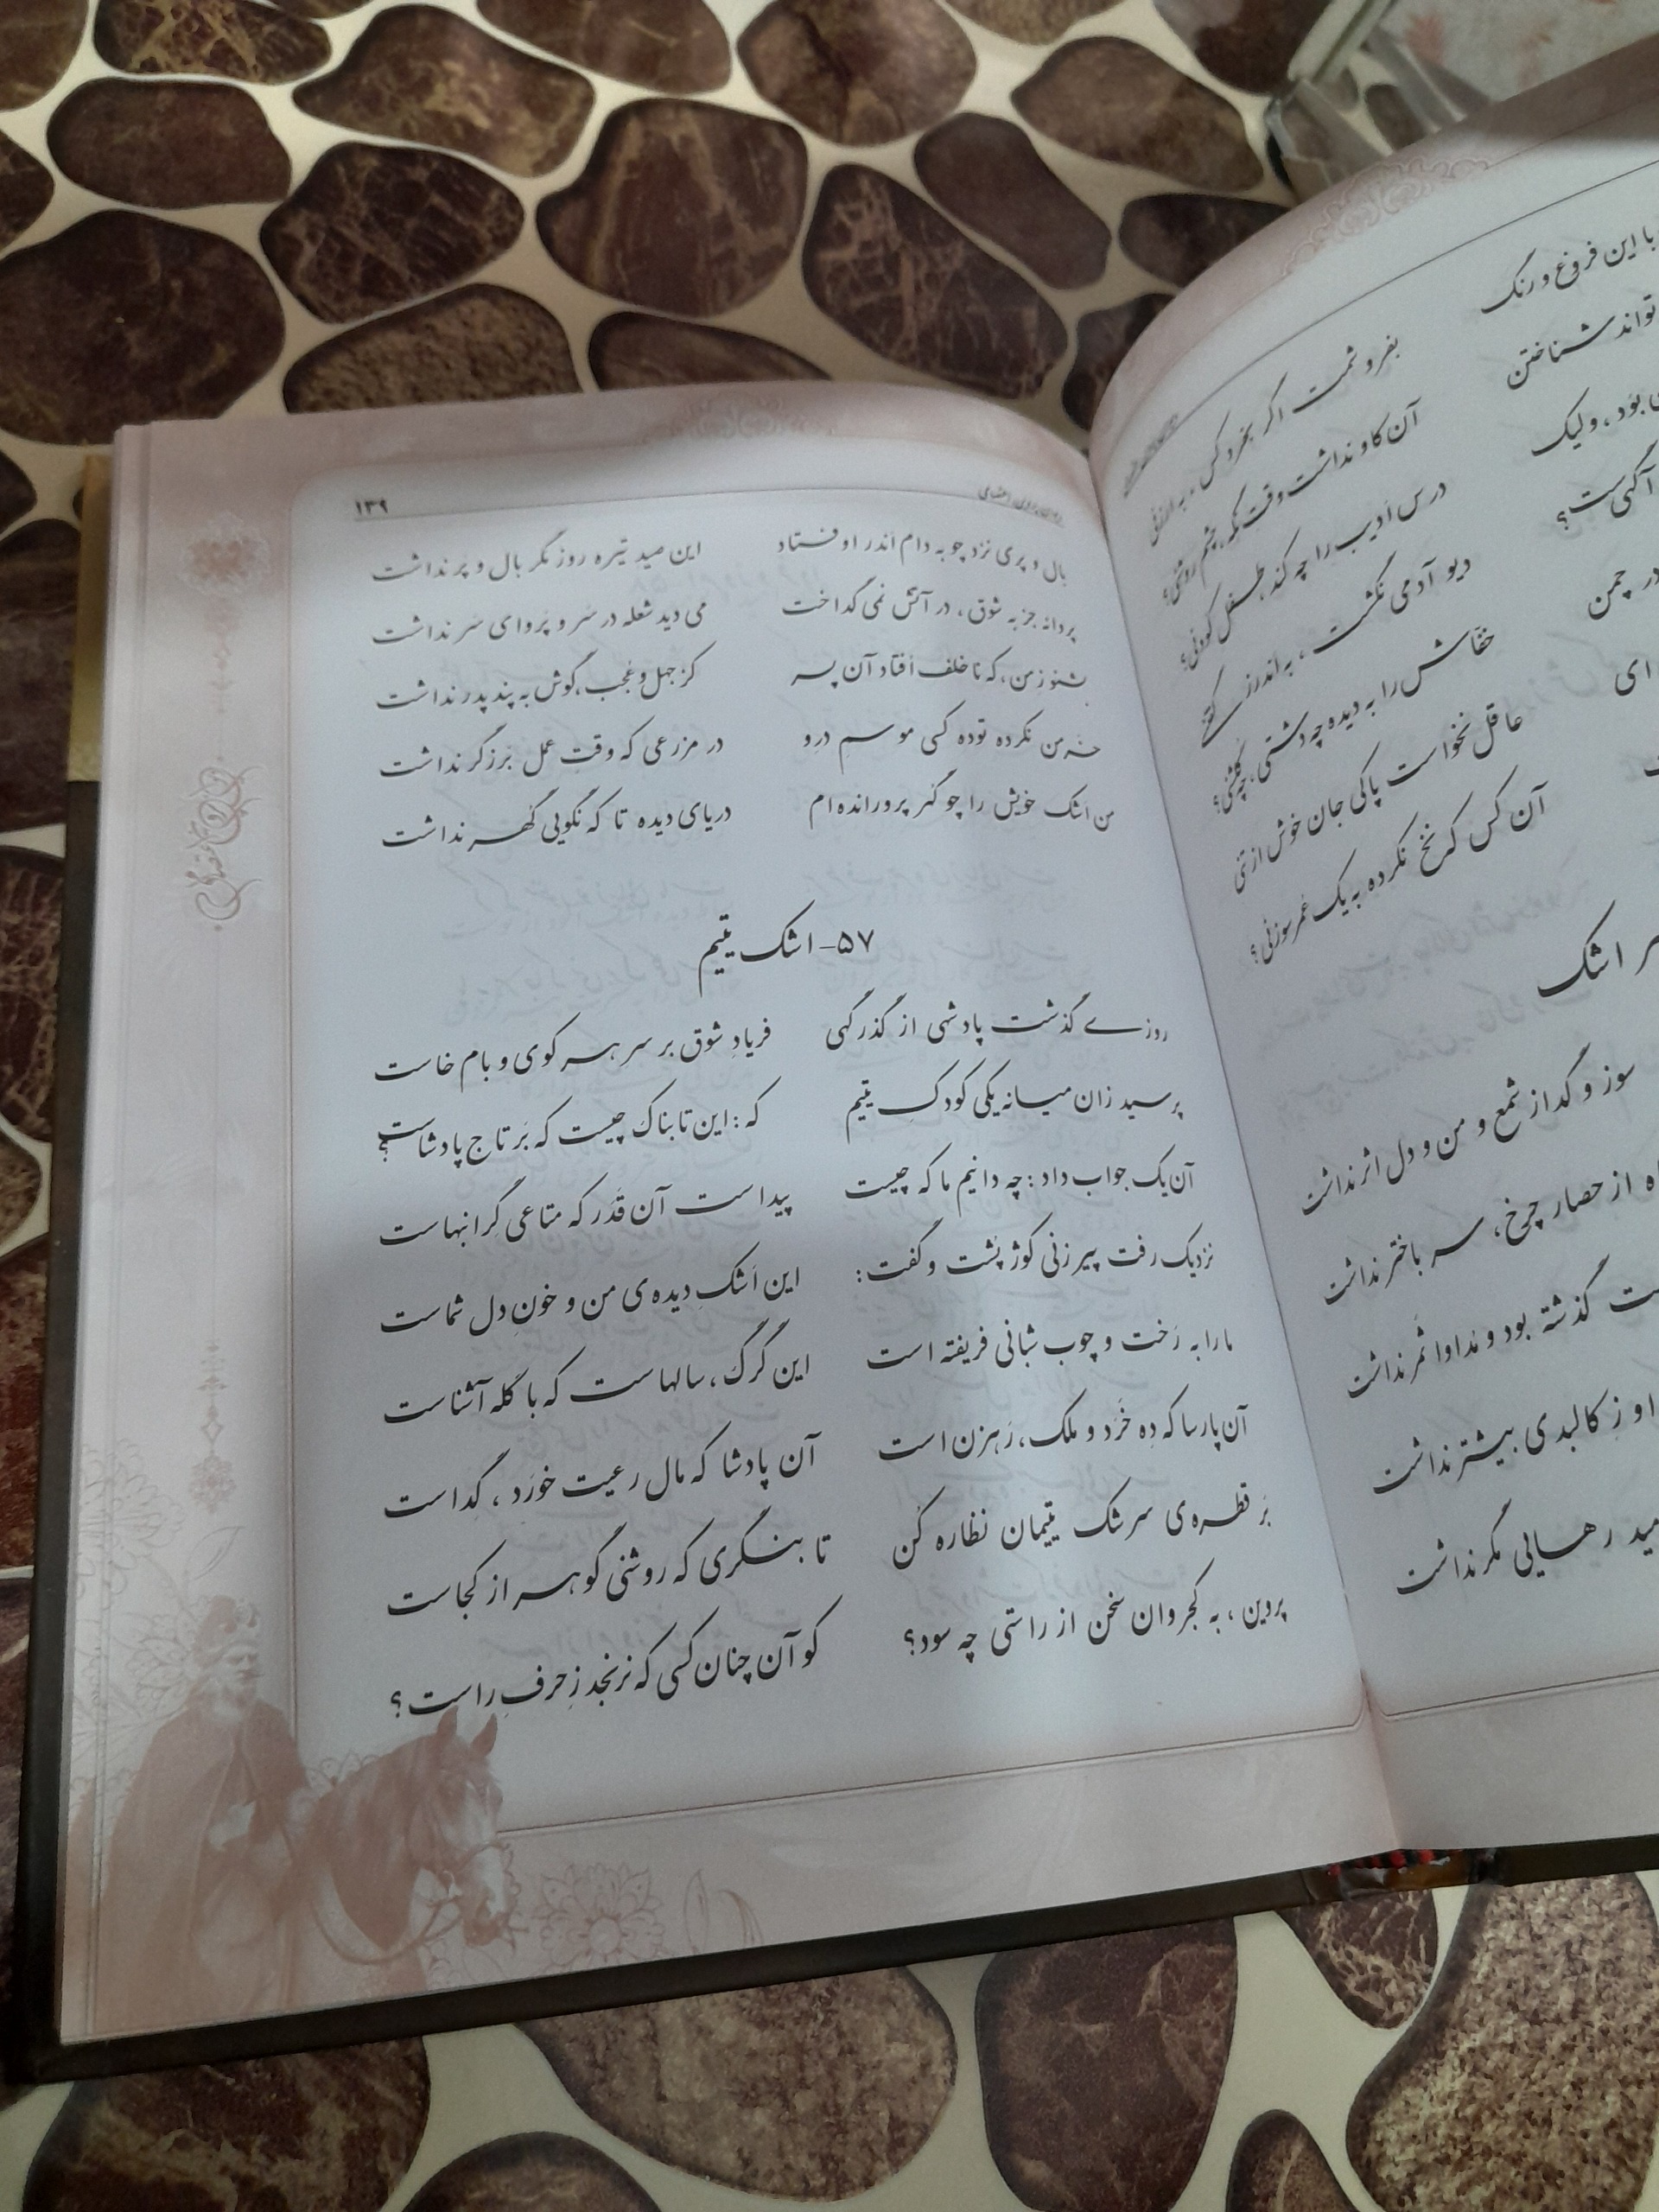 ۱۳۹
دیوان پروین اعتصامی
بال و پری نزد چو به دام اندر اوفتاد این صید تیره روز مگر بال و پر نداشت
پروانه جز به شوق، در آتش نمی گداخت می دید شعله در سر و پروای سر نداشت
بشنو ز من، که ناخلف افتاد آن پسر کز جهل و عجب، گوش به پند پدر نداشت
خرمن نکرده توده کسی موسم درو در مزرعی که وقتِ عمل بَرزگر نداشت
من اشک خویش را چو گهر پرورانده ام دریای دیده تا که نگویی گهر نداشت
۵۷- اشک یتیم
روزی گذشت پادشهی از گذرگهی فریادِ شوق بر سر هر کوی و بام خاست
پرسید زان میانه یکی کودکِ یتیم که: این تابناک چیست که بَر تاج پادشاست؟
آن یک جواب داد: چه دانیم ما که چیست پیداست آن قَدَر که متاعی گرانبهاست
نزدیک رفت پیرزنی کوژپُشت و گفت: این اَشکِ دیده ی من و خونِ دل شماست
ما را به رَخت و چوب شبانی فریفته است این گرگ، سالهاست که با گله آشناست
آن پارسا که دِه خَرَد و ملک، رَهزن است آن پادشا که مال رعیت خورَد، گِداست
بَر قطره ی سرشک یتیمان نظاره کُن تا بنگری که روشنی گوهر از کجاست
پروین، به کجروان سخن از راستی چه سود؟ کو آن چنان کسی که نرنجد زِ حرفِ راست؟
با این فروغ و رنگ
بفروشمت اگر بخرد کس، به ارزنی
تواند شناختن
بود، ولیک
درس ادیب را چه کند، طفل کودنی؟
در چمن
خفّاش را به دیده چه دشتی، چه گلشنی؟
ای
عاقل نخواست پاکی جان خوش از تنی
آن کس که نخ نکرده به یک عمر سوزنی؟
اشک
سوز و گداز شمع و من و دل اثر نداشت
از حصار چرخ، سر باختر نداشت
گذشته بود و مداوا ثمر نداشت
او زِ کالبدی بیشتر نداشت
رهایی مگر نداشت